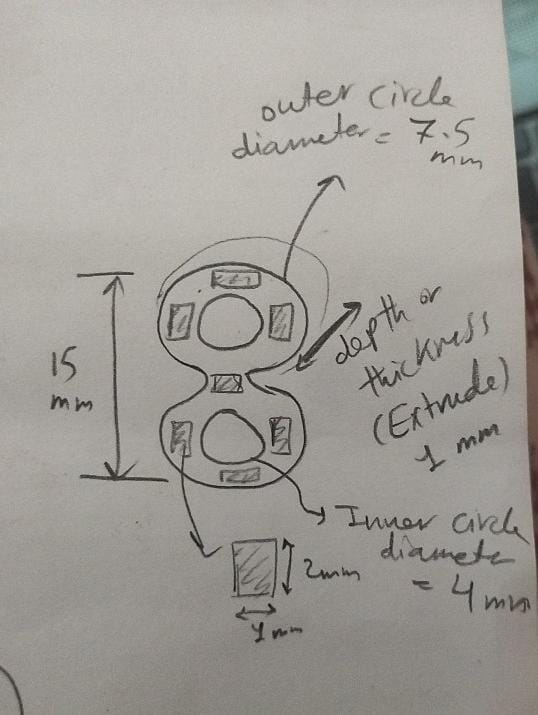 outer circle
diameter = 7.5
mm
15
mm
depth or
thickness
(Extrude)
1 mm
Inner circle
diameter
= 4 mm
2mm
1 mm